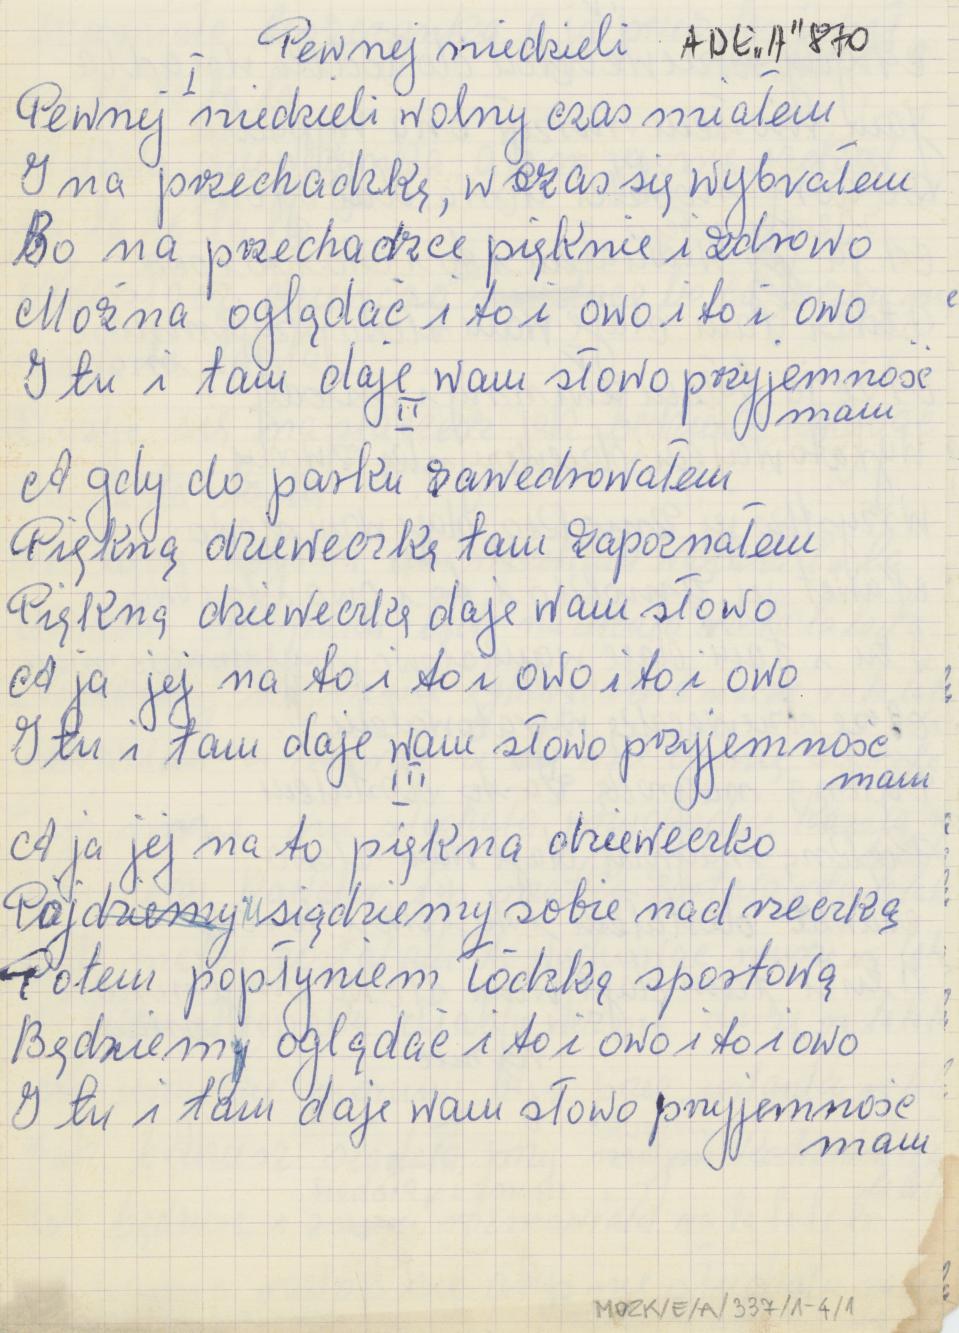 Pewnej niedzieli ADE„A" 870
I
Pewnej niedzieli wolny czas miałem
I na przechadzkę, w czas się wybrałem
Bo na przechadzce pięknie i zdrowo
Można oglądać i to i owo i to i owo
I tu i tam daję wam słowo przyjemność
mam
II
A gdy do parku zawedrowałem
Piękną dzieweczkę tam zapoznałem
Piękną dzieweczkę daje wam słowo
A ja jej na to i to i owo i to i owo
I tu i tam daje wam słowo przyjemność
mam
III
A ja jej na to piękna dzieweczko
Pójdziemy usiądziemy sobie nad rzeczką
Potem popłyniem łódzką sportową
Będziemy oglądać i to i owo i to i owo
I tu i tam daje wam słowo przyjemność
mam
MOZK/E/A/337/1-4/1